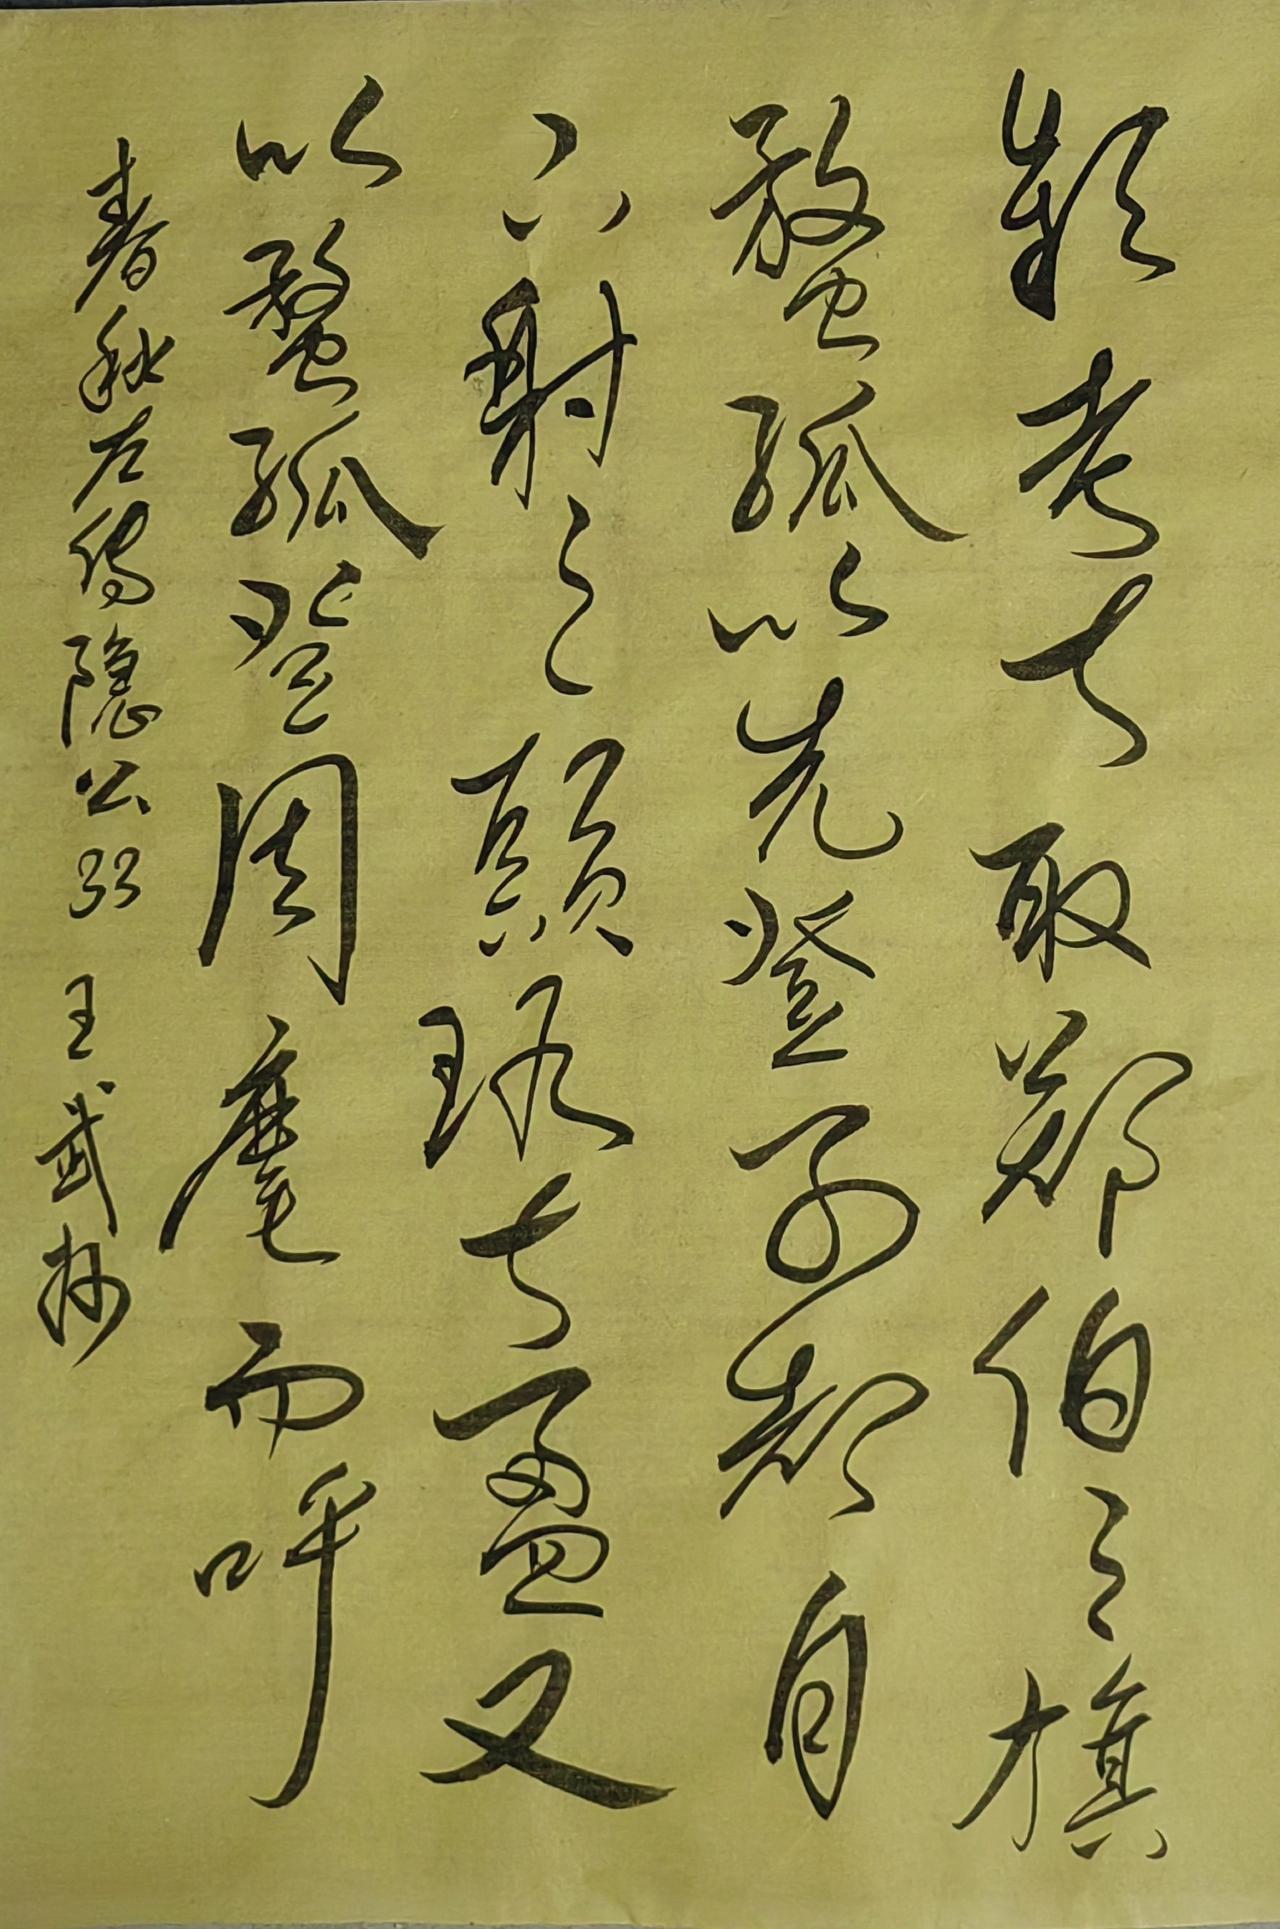 颖考叔取郑伯之旗
蝥弧以先登子都自
下射之颠瑕叔盈又
以蝥弧登周麾而呼
春秋左传隐公33 王武